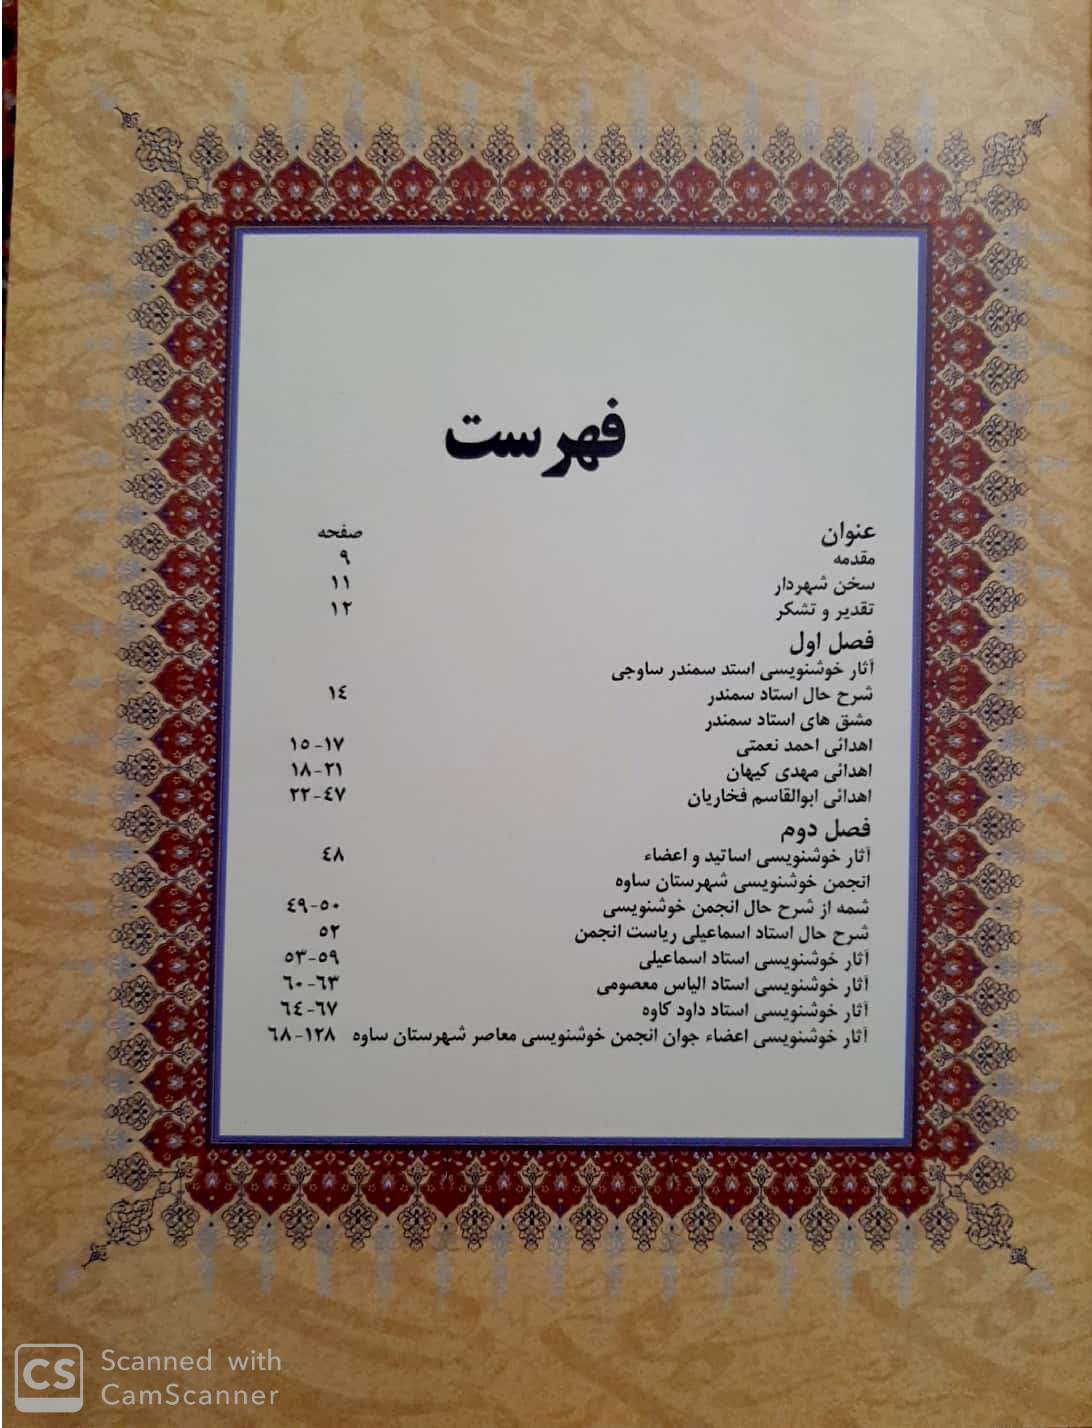 فهرست
عنوان صفحه
مقدمه ۹
سخن شهردار ۱۱
تقدیر و تشکر ۱۲
فصل اول
آثار خوشنویسی استد سمندر ساوجی
شرح حال استاد سمندر ۱٤
مشق های استاد سمندر
اهدائی احمد نعمتی ۱۷-۱۵
اهدائی مهدی کیهان ۲۱-۱۸
اهدائی ابوالقاسم فخاریان ٤۷-۲۲
فصل دوم
آثار خوشنویسی اساتید و اعضاء ٤۸
انجمن خوشنویسی شهرستان ساوه
شمه از شرح حال انجمن خوشنویسی ۵۰-٤۹
شرح حال استاد اسماعیلی ریاست انجمن ۵۲
آثار خوشنویسی استاد اسماعیلی ۵۹-۵۳
آثار خوشنویسی استاد الیاس معصومی ٦۳-٦۰
آثار خوشنویسی استاد داود کاوه ٦۷-٦٤
آثار خوشنویسی اعضاء جوان انجمن خوشنویسی معاصر شهرستان ساوه ۱۲۸-٦۸
CS Scanned with
CamScanner